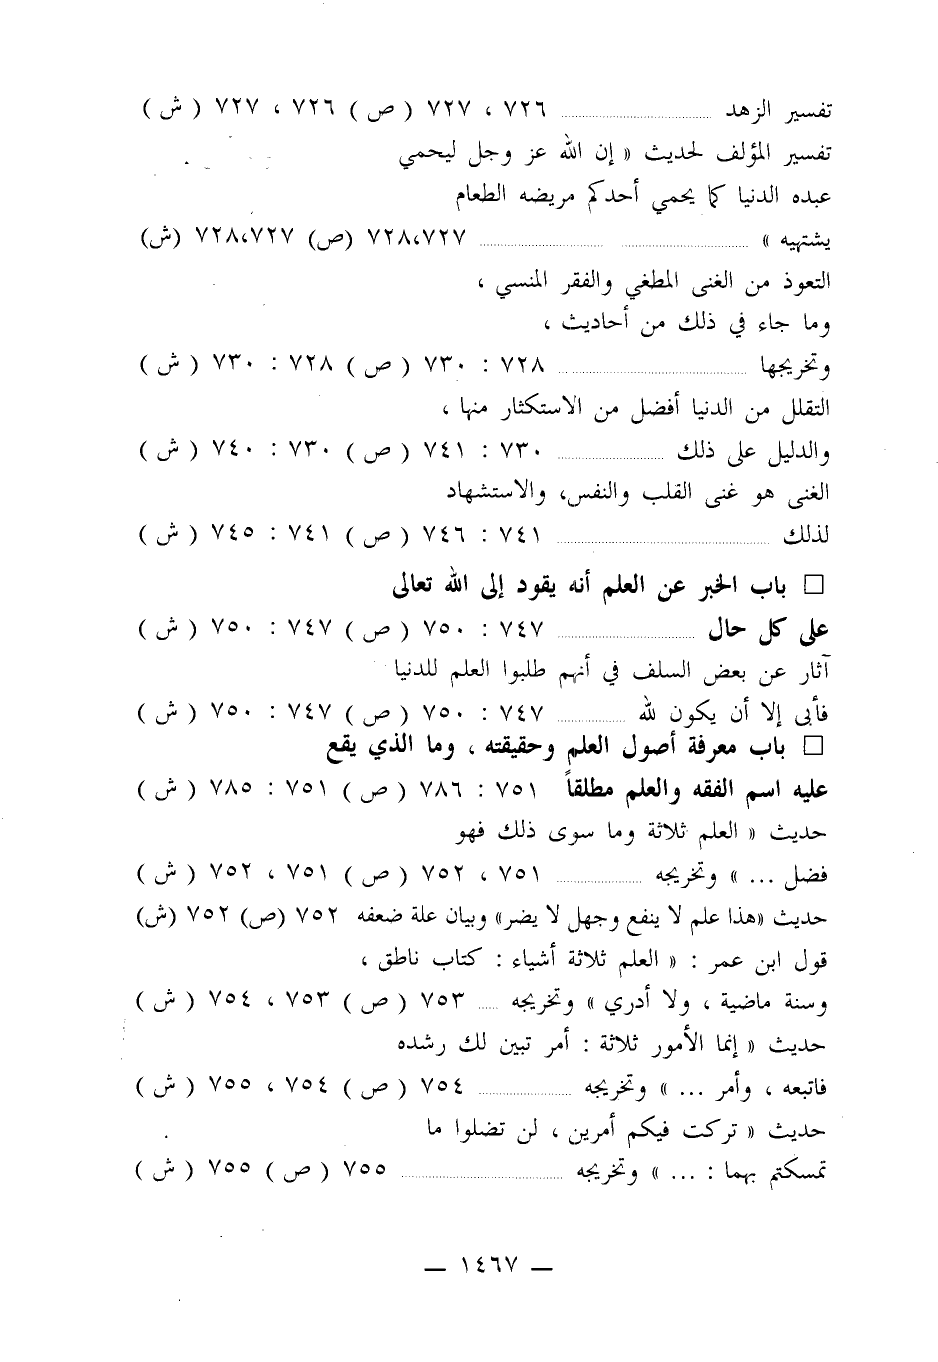 تفسير الزهد ........ ٧٢٦ ، ٧٢٧ ( ص ) ٧٢٦ ، ٧٢٧ ( ش )
تفسير المؤلف لحديث « إن الله عز وجل ليحمي
عبده الدنيا كما يحمي أحدكم مريضه الطعام
يشتهيه » ........ ٧٢٨،٧٢٧ (ص) ٧٢٨،٧٢٧ (ش)
التعوذ من الغنى المطغي والفقر المنسي ،
وما جاء في ذلك من أحاديث ،
وتخريجها ........ ٧٢٨ : ٧٣٠ ( ص ) ٧٢٨ : ٧٣٠ ( ش )
التقلل من الدنيا أفضل من الاستكثار منها ،
والدليل على ذلك ........ ٧٣٠ : ٧٤١ ( ص ) ٧٣٠ : ٧٤٠ ( ش )
الغنى هو غنى القلب والنفس، والاستشهاد
لذلك ........ ٧٤١ : ٧٤٦ ( ص ) ٧٤١ : ٧٤٥ ( ش )
□ باب الخبر عن العلم أنه يقود إلى الله تعالى
على كل حال ........ ٧٤٧ : ٧٥٠ ( ص ) ٧٤٧ : ٧٥٠ ( ش )
آثار عن بعض السلف في أنهم طلبوا العلم للدنيا
فأبى إلا أن يكون لله ........ ٧٤٧ : ٧٥٠ ( ص ) ٧٤٧ : ٧٥٠ ( ش )
□ باب معرفة أصول العلم وحقيقته ، وما الذي يقع
عليه اسم الفقه والعلم مطلقاً ٧٥١ : ٧٨٦ ( ص ) ٧٥١ : ٧٨٥ ( ش )
حديث « العلم ثلاثة وما سوى ذلك فهو
فضل ... » وتخريجه ........ ٧٥١ ، ٧٥٢ ( ص ) ٧٥١ ، ٧٥٢ ( ش )
حديث «هذا علم لا ينفع وجهل لا يضر» وبيان علة ضعفه ٧٥٢ (ص) ٧٥٢ (ش)
قول ابن عمر : « العلم ثلاثة أشياء : كتاب ناطق ،
وسنة ماضية ، ولا أدري » وتخريجه ..... ٧٥٣ ( ص ) ٧٥٣ ، ٧٥٤ ( ش )
حديث « إنما الأمور ثلاثة : أمر تبين لك رشده
فاتبعه ، وأمر ... » وتخريجه ........ ٧٥٤ ( ص ) ٧٥٤ ، ٧٥٥ ( ش )
حديث « تركت فيكم أمرين ، لن تضلوا ما
تمسكتم بهما : ... » وتخريجه ........ ٧٥٥ ( ص ) ٧٥٥ ( ش )
— ١٤٦٧ —